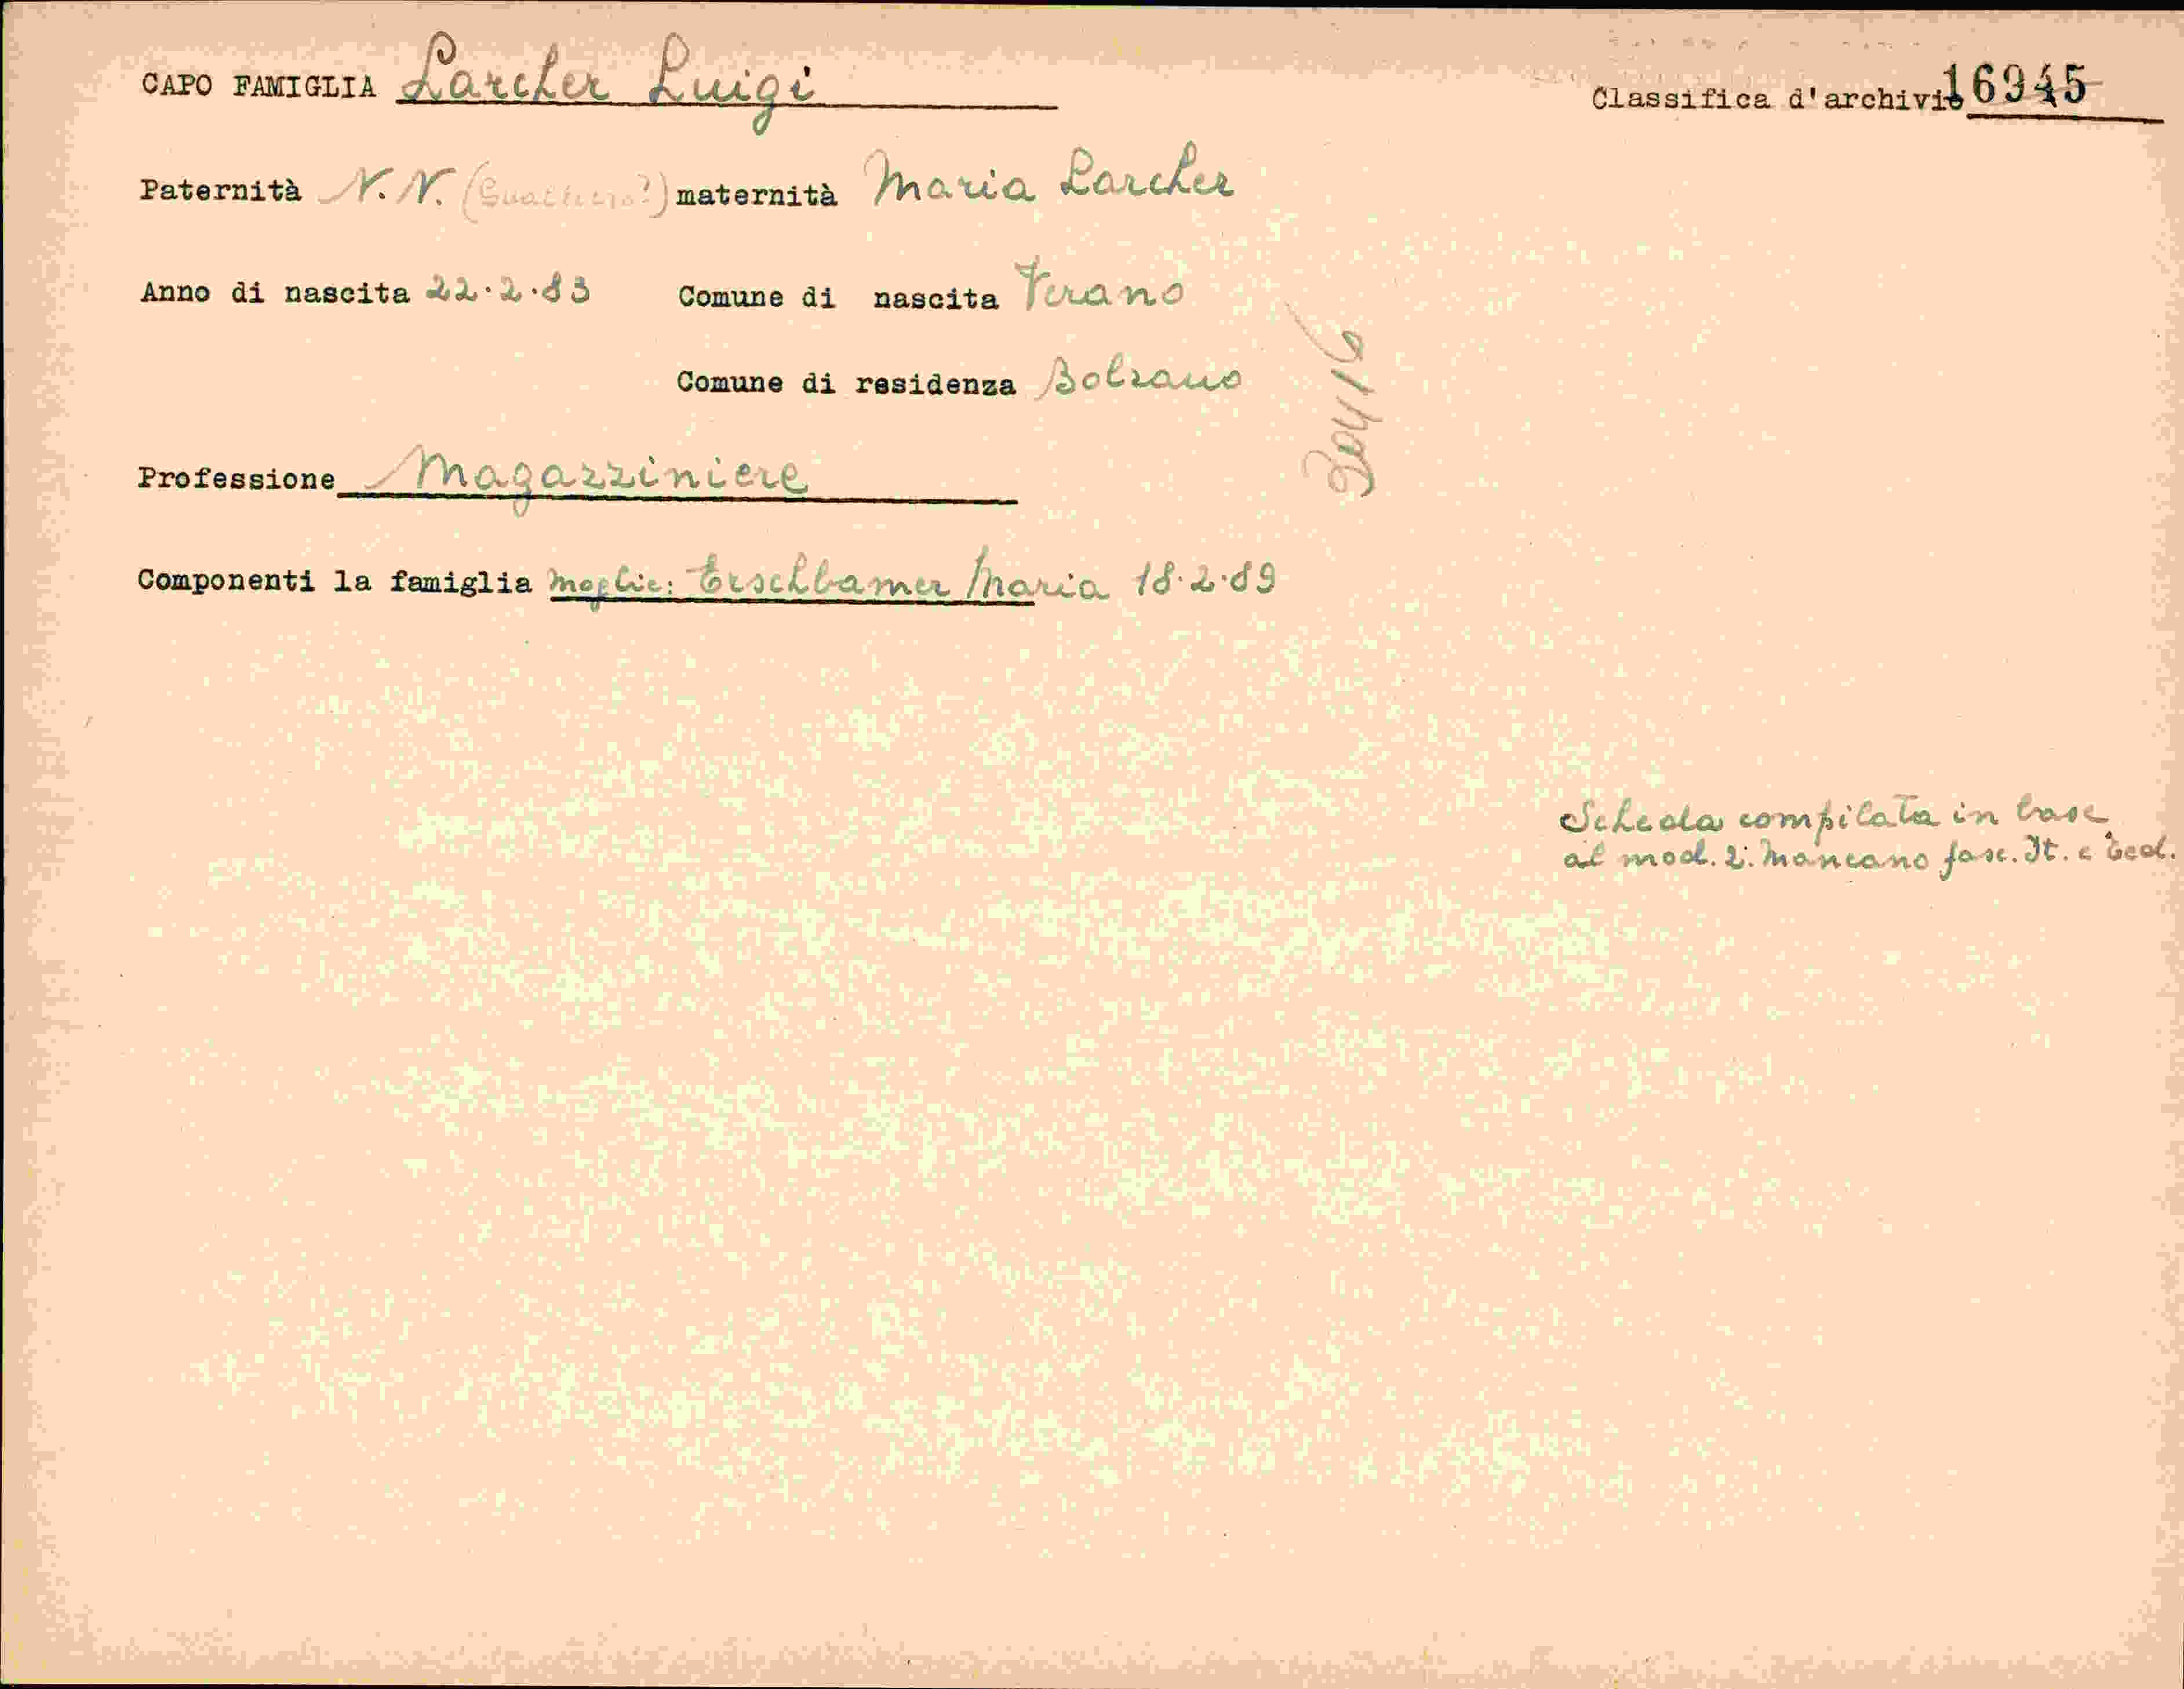 CAPO FAMIGLIA Larcher Luigi
Classifica d'archivio 16945
Paternità N.N. (Gualtiero?) maternità Maria Larcher
Anno di nascita 22.2.83 Comune di nascita Verano
Comune di residenza Bolzano
Professione Magazziniere
Componenti la famiglia moglie: Erschbamer Maria 18.2.89
Scheda compilata in base
al mod. 2. Mancano fasc. It. e Ted.